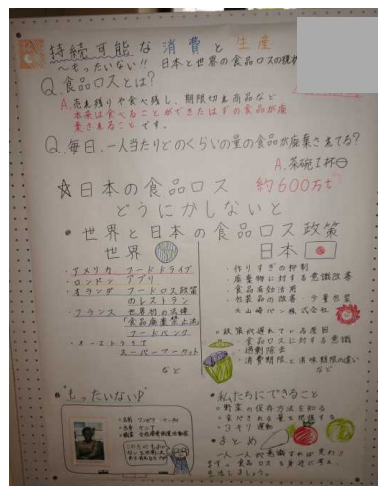 持続可能な消費と生産
～もったいない!! 日本と世界の食品ロスの現状
Q.食品ロスとは?
A.売れ残りや食べ残し、期限切れ商品など
本来は食べることができたはずの食品が廃
棄されること です。
Q.毎日、一人当たりどのくらいの量の食品が廃棄されてる?
A.茶碗1杯
☆日本の食品ロス 約600万t
どうにかしないと
・世界と日本の食品ロス政策
世界
・アメリカ フードドライブ
・ロンドン アプリ
・オランダ フードロス政策
のレストラン
・フランス 世界初の法律
「食品廃棄禁止法」
フードバンク
・オーストラリア
スーパーマーケット
など
日本
・作りすぎの抑制
・廃棄物に対する意識改善
・食品有効活用
・包装品の改善・少量包装
株式会社
・政策が遅れている原因
・食品ロスに対する意識
・過剰除去
・消費期限と消味期限の違い
など
・もったいない
・名前
・出身 ケニア
・職業
・私たちにできること
・野菜の保存方法を知る
・食べきれる量を
・3キリ運動
・まとめ
一人一人が意識すれば変わり
ます。食品ロスを身近に考え